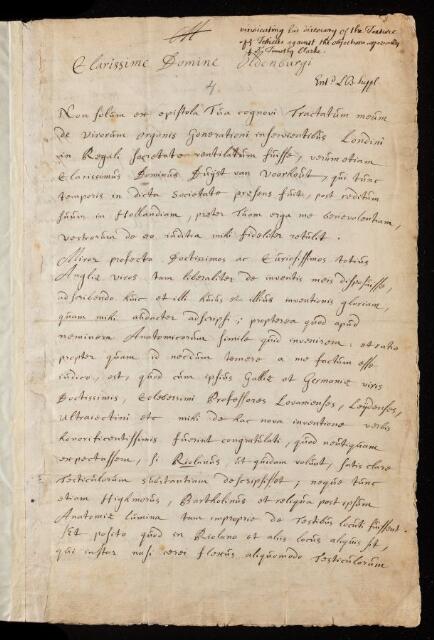 vindicating his discovery of the Texture
of Testicles against the objections approved by
Dr Timothy Clarke.
Clarissime Domine Oldenburgi
Entd LB. Suppl.
4.
Non solum ex epistola Tua cognovi Tractatum meum
de Virorum Organis Generationi inservientibus Londini
in Regali Societate ventilatum fuisse, verum etiam
Clarissimus Dominus Huyst van Voorhout, qui tunc
temporis in dicta Societate presens fuit, post reditum
suum in Hollandiam, preter Tuam erga me benevolentiam,
vestrorum de eo iuditia mihi fideliter retulit.
Miror profecto Doctissimos ac Curiosissimos totius
Angliæ viros tam liberaliter de inventis meis disposuisse,
adscribendo huic et illi huius vel illius inventionis gloriam,
quam mihi audacter adscripsi; propterea quod apud
neminem Anatomicorum simile quid invenirem. et ratio
propter quam id necdum temere a me factum esse
iudico, est, quod cum ipsius Galliæ et Germaniæ viris
Doctissimis, Celeberrimi Professores Lovanienses, Leydenses,
Ultraiectini etc mihi de hac nova inventione verbis
honorificentissimis fuerint congratulati, quod neutiquam
expectassem, si Riolanus, ut quidam volunt, satis clare
Testiculorum substantiam descripsisset; neque tunc
etiam Highmorus, Bartholinus et reliqua post ipsum
Anatomiæ lumina tam improprie de Testibus locuti fuissent.
Set posito quod in Riolano et aliis locus aliquis sit,
qui instar nasi cerei flexus aliquomodo Testiculorum